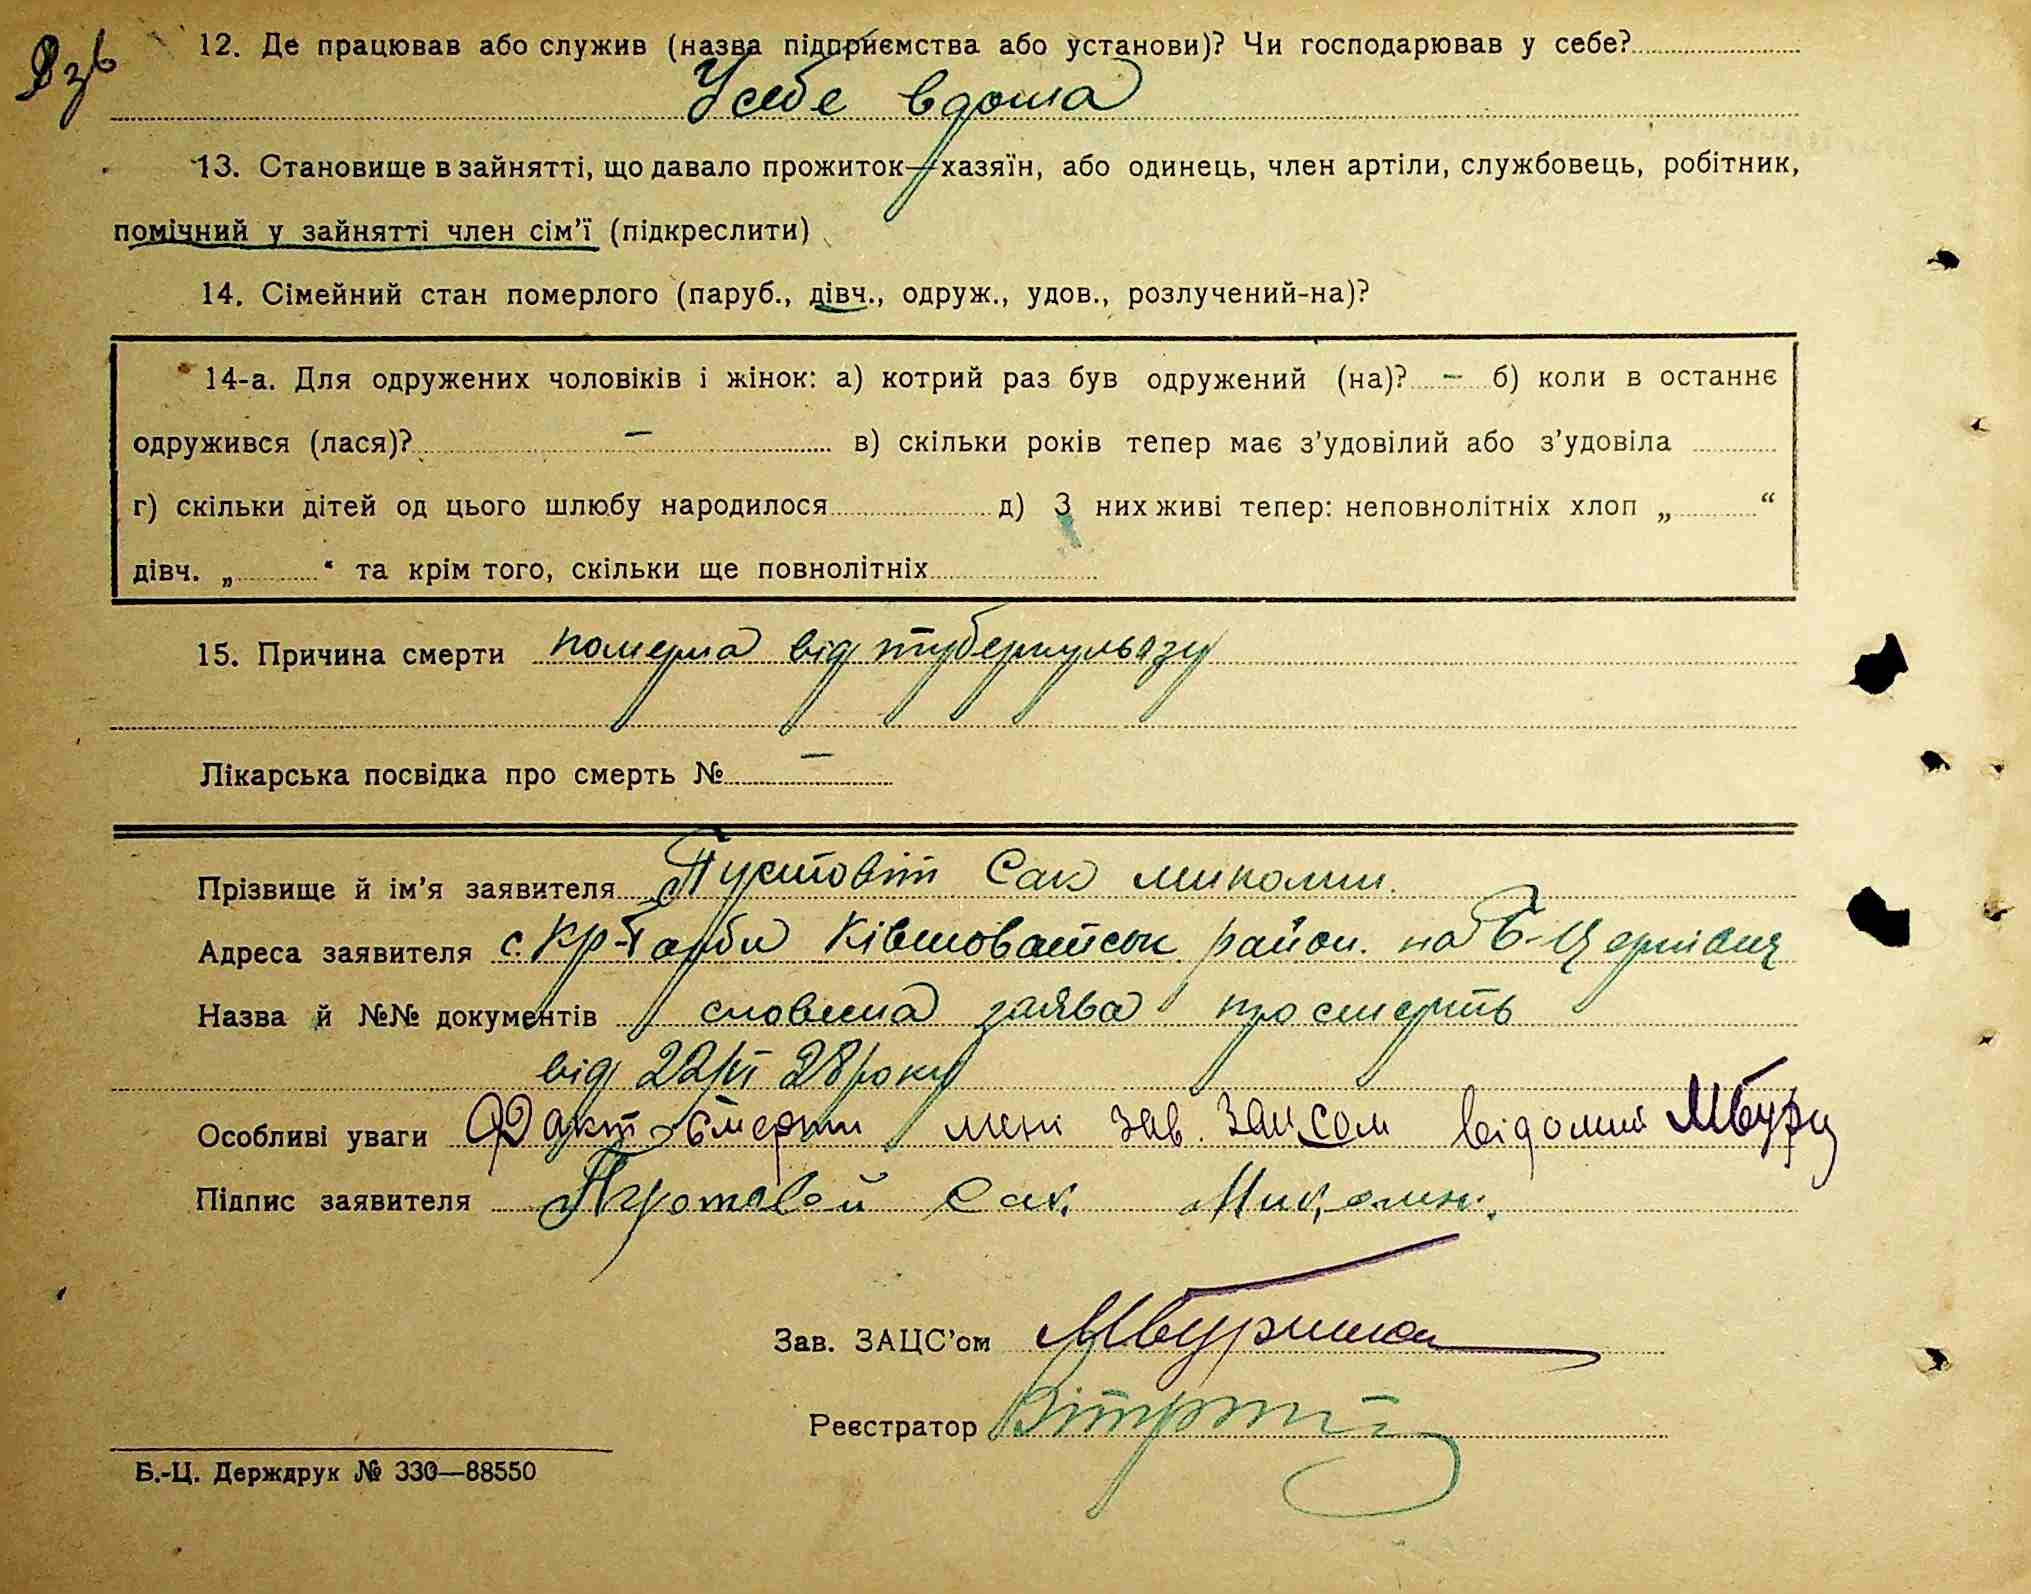 12. Де працював або служив (назва підприємства або установи)? Чи господарював у себе?
У себе вдома
13. Становище в зайнятті, що давало прожиток—хазяїн, або одинець, член артіли, службовець, робітник,
помічний у зайнятті член сім'ї (підкреслити)
14. Сімейний стан померлого (паруб., дівч., одруж., удов., розлучений-на)?
14-а. Для одружених чоловіків і жінок: а) котрий раз був одружений (на)? – б) коли в останнє
одружився (лася)? – в) скільки років тепер має з'удовілий або з'удовіла
г) скільки дітей од цього шлюбу народилося д) З них живі тепер: неповнолітніх хлоп „ “
дівч. „ “ та крім того, скільки ще повнолітніх
15. Причина смерти померла від туберкульозу
Лікарська посвідка про смерть № –
Прізвище й ім'я заявителя Пустовіт Сак
Адреса заявителя с. Кр- Ківшоватськ. район. на Б-Церківщ
Назва й №№ документів словесна заява про смерть
від 22/VI 28 року
Особливі уваги Факт смерти мені зав. загсом відомий
Підпис заявителя Сак.
Зав. ЗАЦС'ом
Реєстратор
Б.-Ц. Держдрук № 330—88550